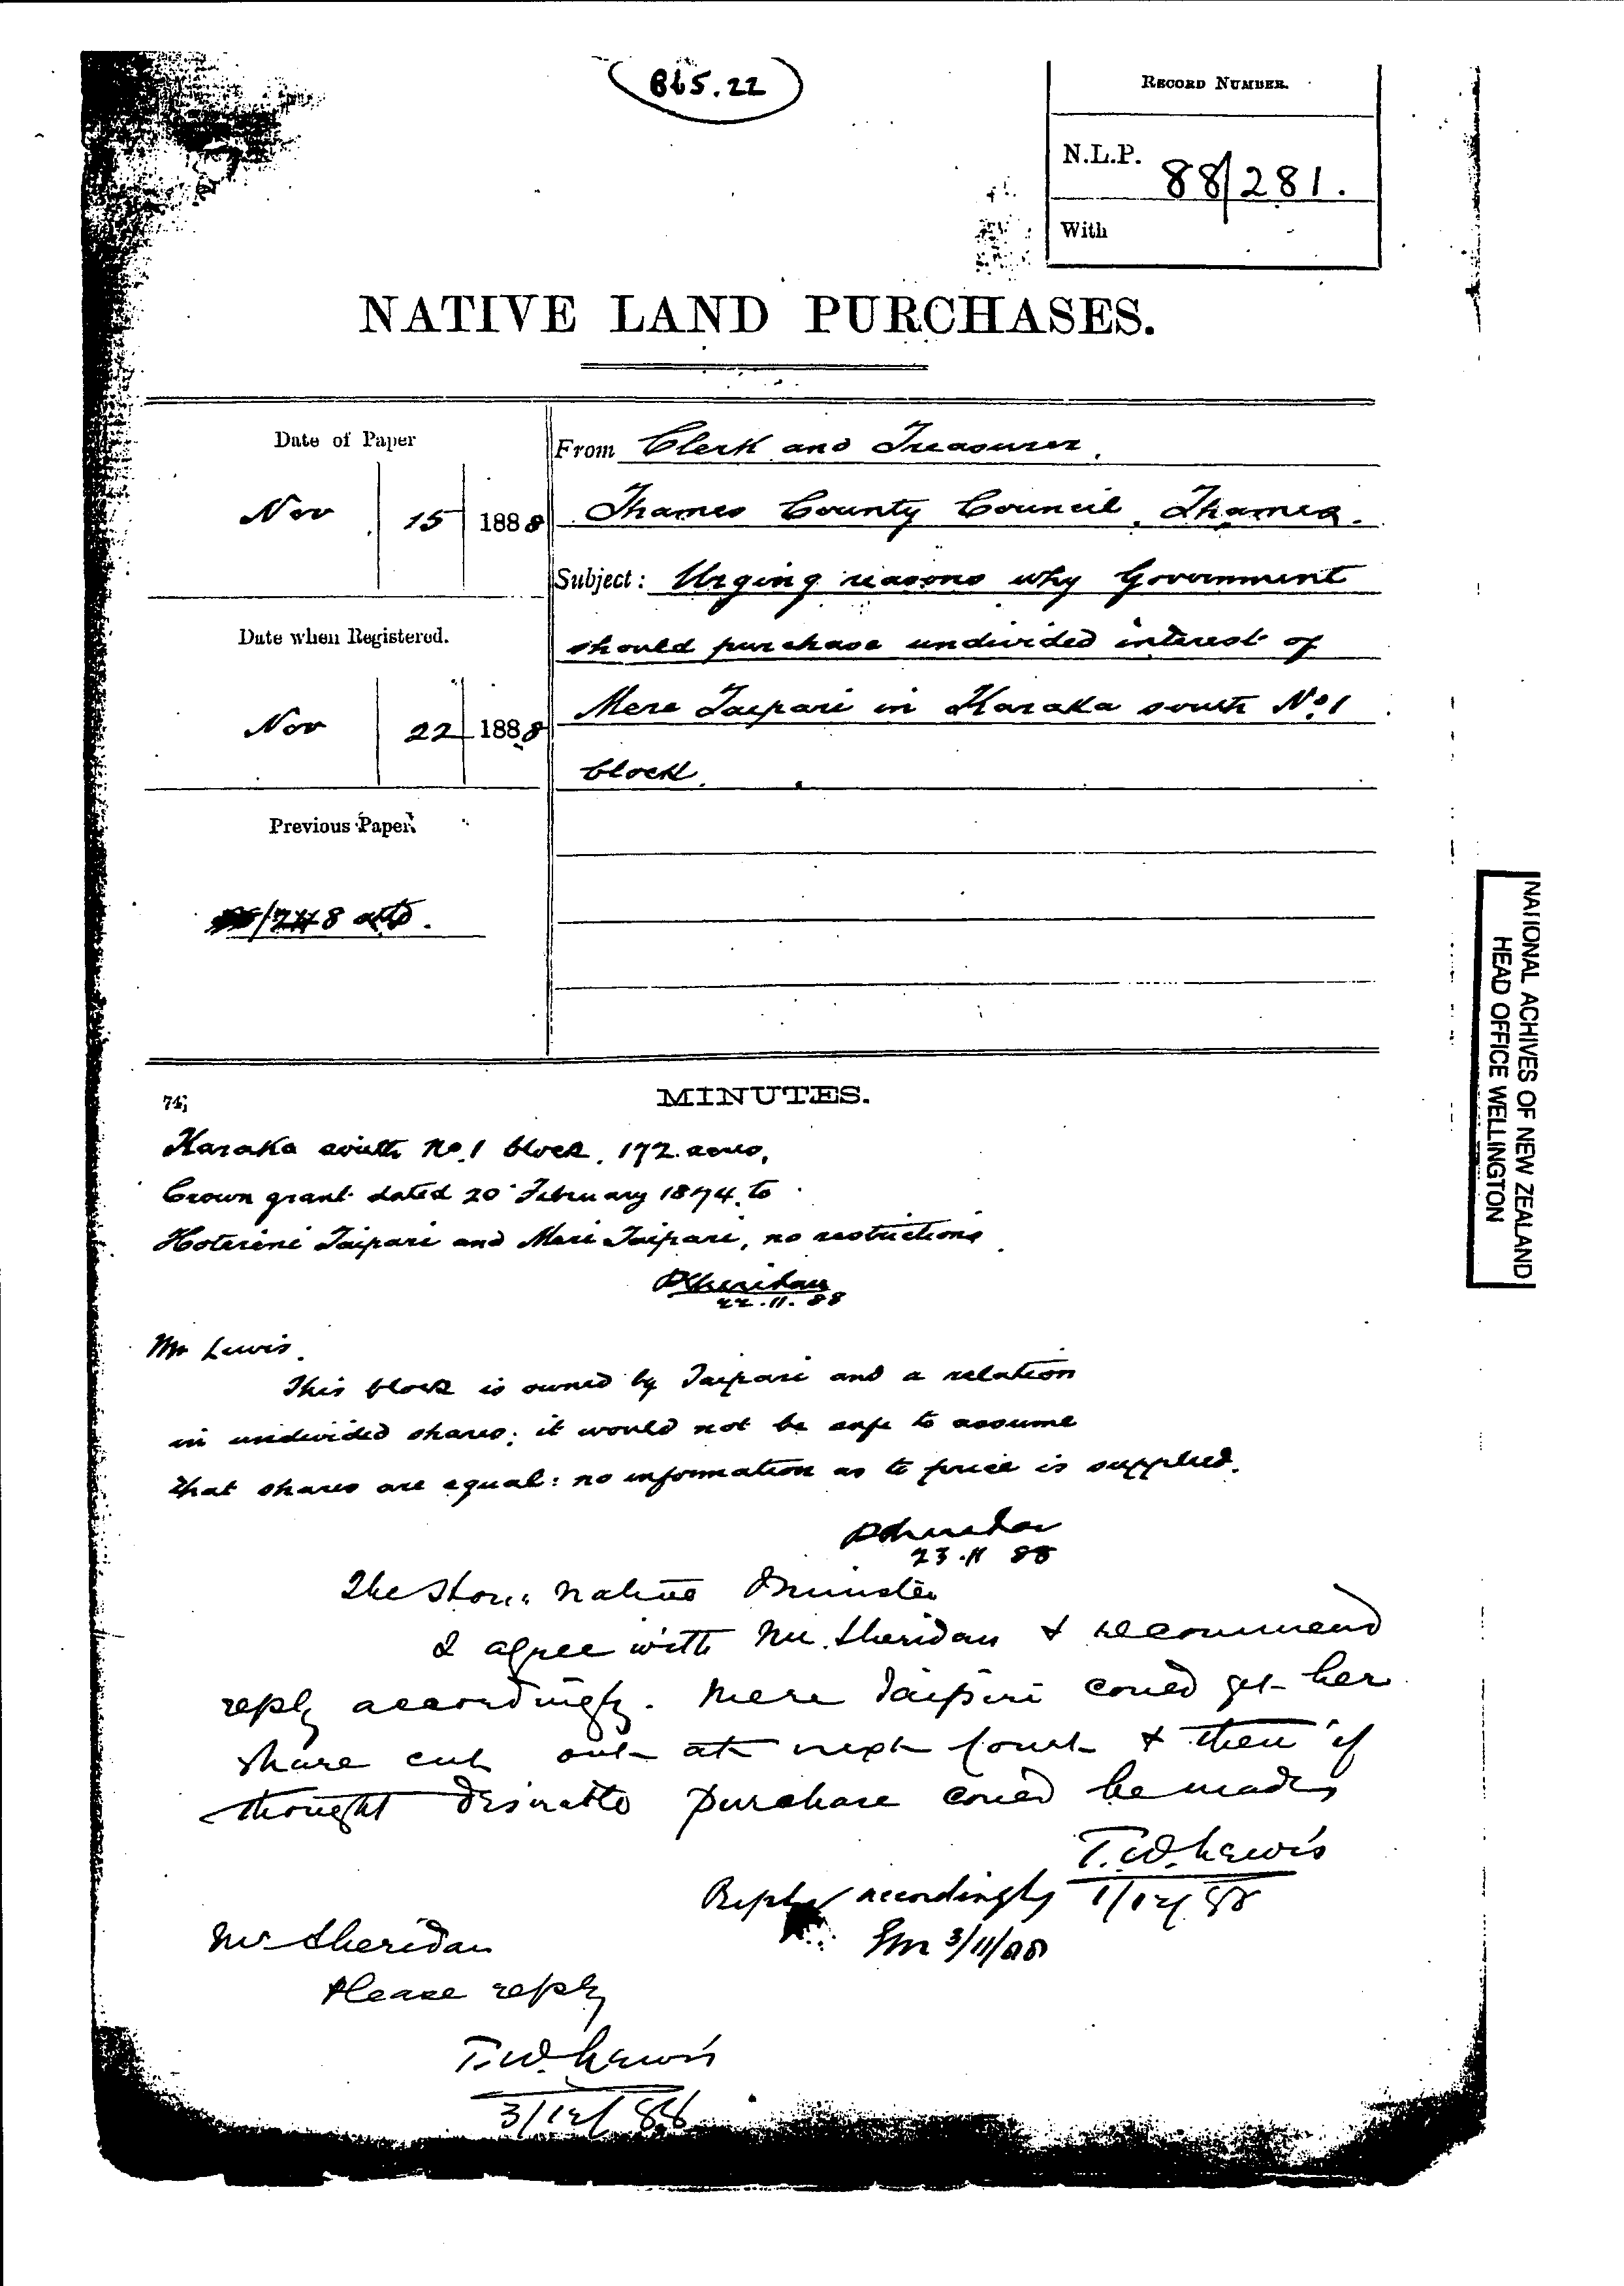 B65.22
RECORD NUMBER.
N.L.P. 88/281.
With
NATIVE LAND PURCHASES.
Date of Paper
Nov 15 1888
Date when Registered.
Nov 22 1888
Previous Paper.
From Clerk and Treasurer,
Thames County Council, Thames.
Subject: Urging reasons why Government
should purchase undivided interest of
Mere Taipari in Karaka south No 1
block.
74;
MINUTES.
Karaka south No. 1 block. 172 acres,
Crown grant dated 20 February 1874 to
Hoterini Taipari and Mere Taipari, no restrictions.
PSheridan
22.11.88
Mr Lewis.
This block is owned by Taipari and a relation
in undivided shares; it would not be safe to assume
that shares are equal: no information as to price is supplied.
PSheridan
23.11 88
The Hon. Native Minister
I agree with Mr. Sheridan & recommend
reply accordingly. Mere Taipari could get her
share cut out at next Court & then if
thought desirable purchase could be made
T.W. Lewis
1/12/88
Reply accordingly
3/11/88
Mr Sheridan
Please reply
T.W. Lewis
3/12/88
NATIONAL ACHIVES OF NEW ZEALAND
HEAD OFFICE WELLINGTON